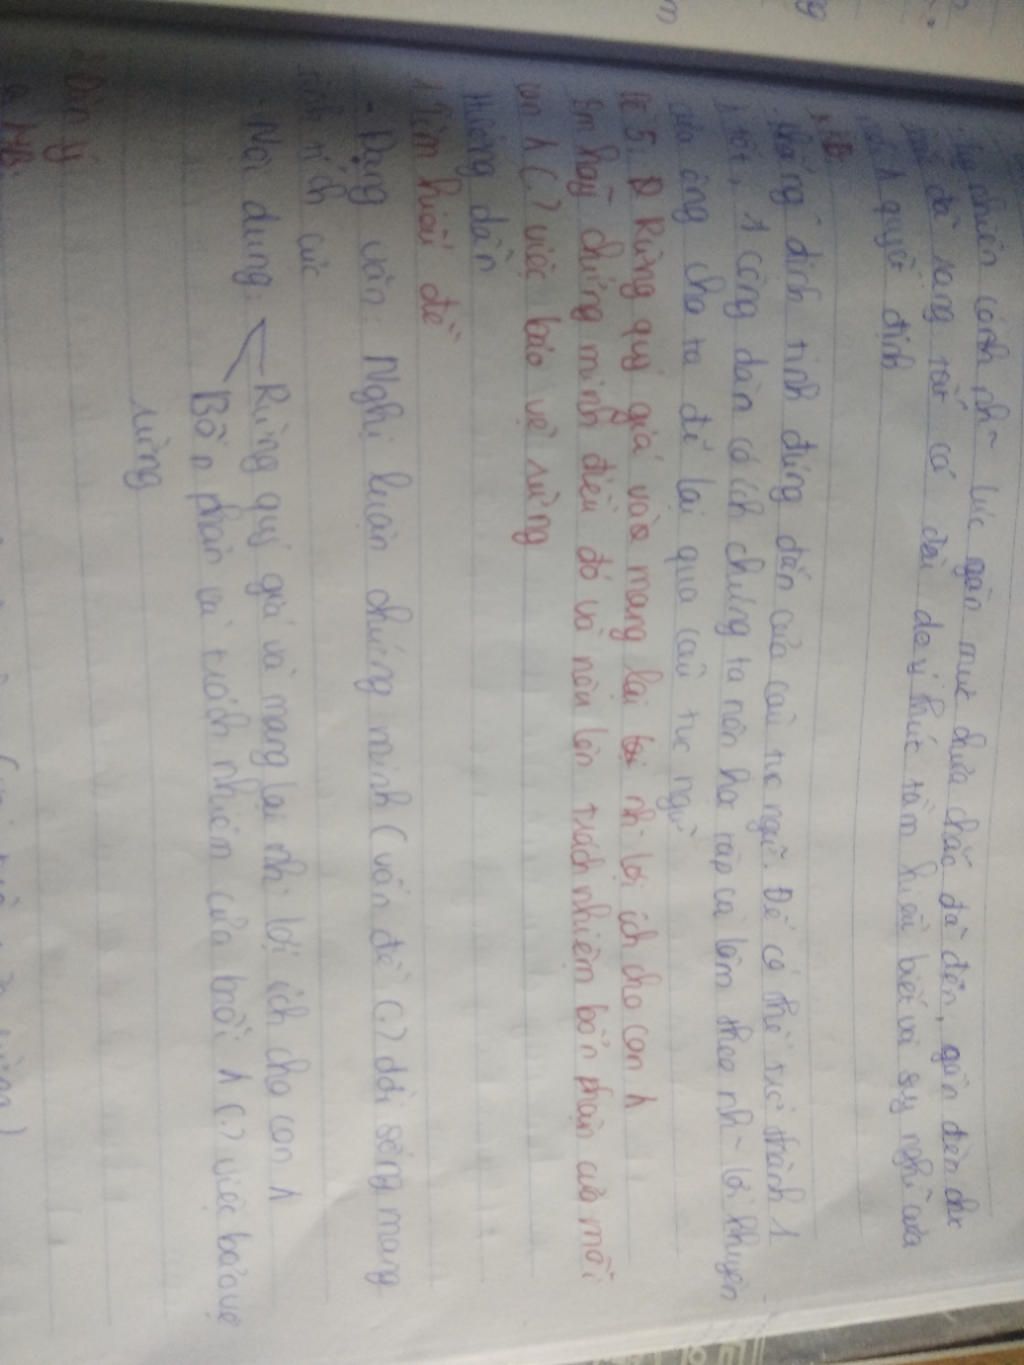 chiến cánh nh~ lúc gần mực chưa chắc đã đen, gần đèn chx
đã rạng tất cả đều do ý thức tầm hiểu biết và suy nghĩ của
1 quyết định
KB
khẳng định tính đúng đắn của câu tục ngữ. Để có thể trở thành 1
1 tốt, 1 công dân có ích chúng ta nên học tập và làm theo nh~ lời khuyên
của ông cha ta để lại qua câu tục ngữ
Đề 5: Rừng quý giá và mang lại nh~ lợi ích cho con λ
Em hãy chứng minh điều đó và nêu lên trách nhiệm bổn phận của mỗi
con λ (.) việc bảo vệ rừng
Hướng dẫn
1 Tìm hiểu đề
- Dạng văn: Nghị luận chứng minh (vấn đề (.) đời sống mang
tính tích cực
- Nội dung: Rừng quý giá và mang lại nh~ lợi ích cho con λ
Bổn phận và trách nhiệm của mỗi λ (.) việc bảo vệ
rừng
2 Dàn ý
a MB: